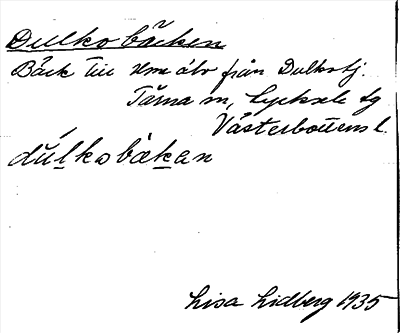 Dulkobäcken
Bäck till Ume älv från Dulkosj.
Tärna sn, Lycksele tg
Västerbottens l.
dúl̲kobäk̲an
Lisa Lidberg 1935